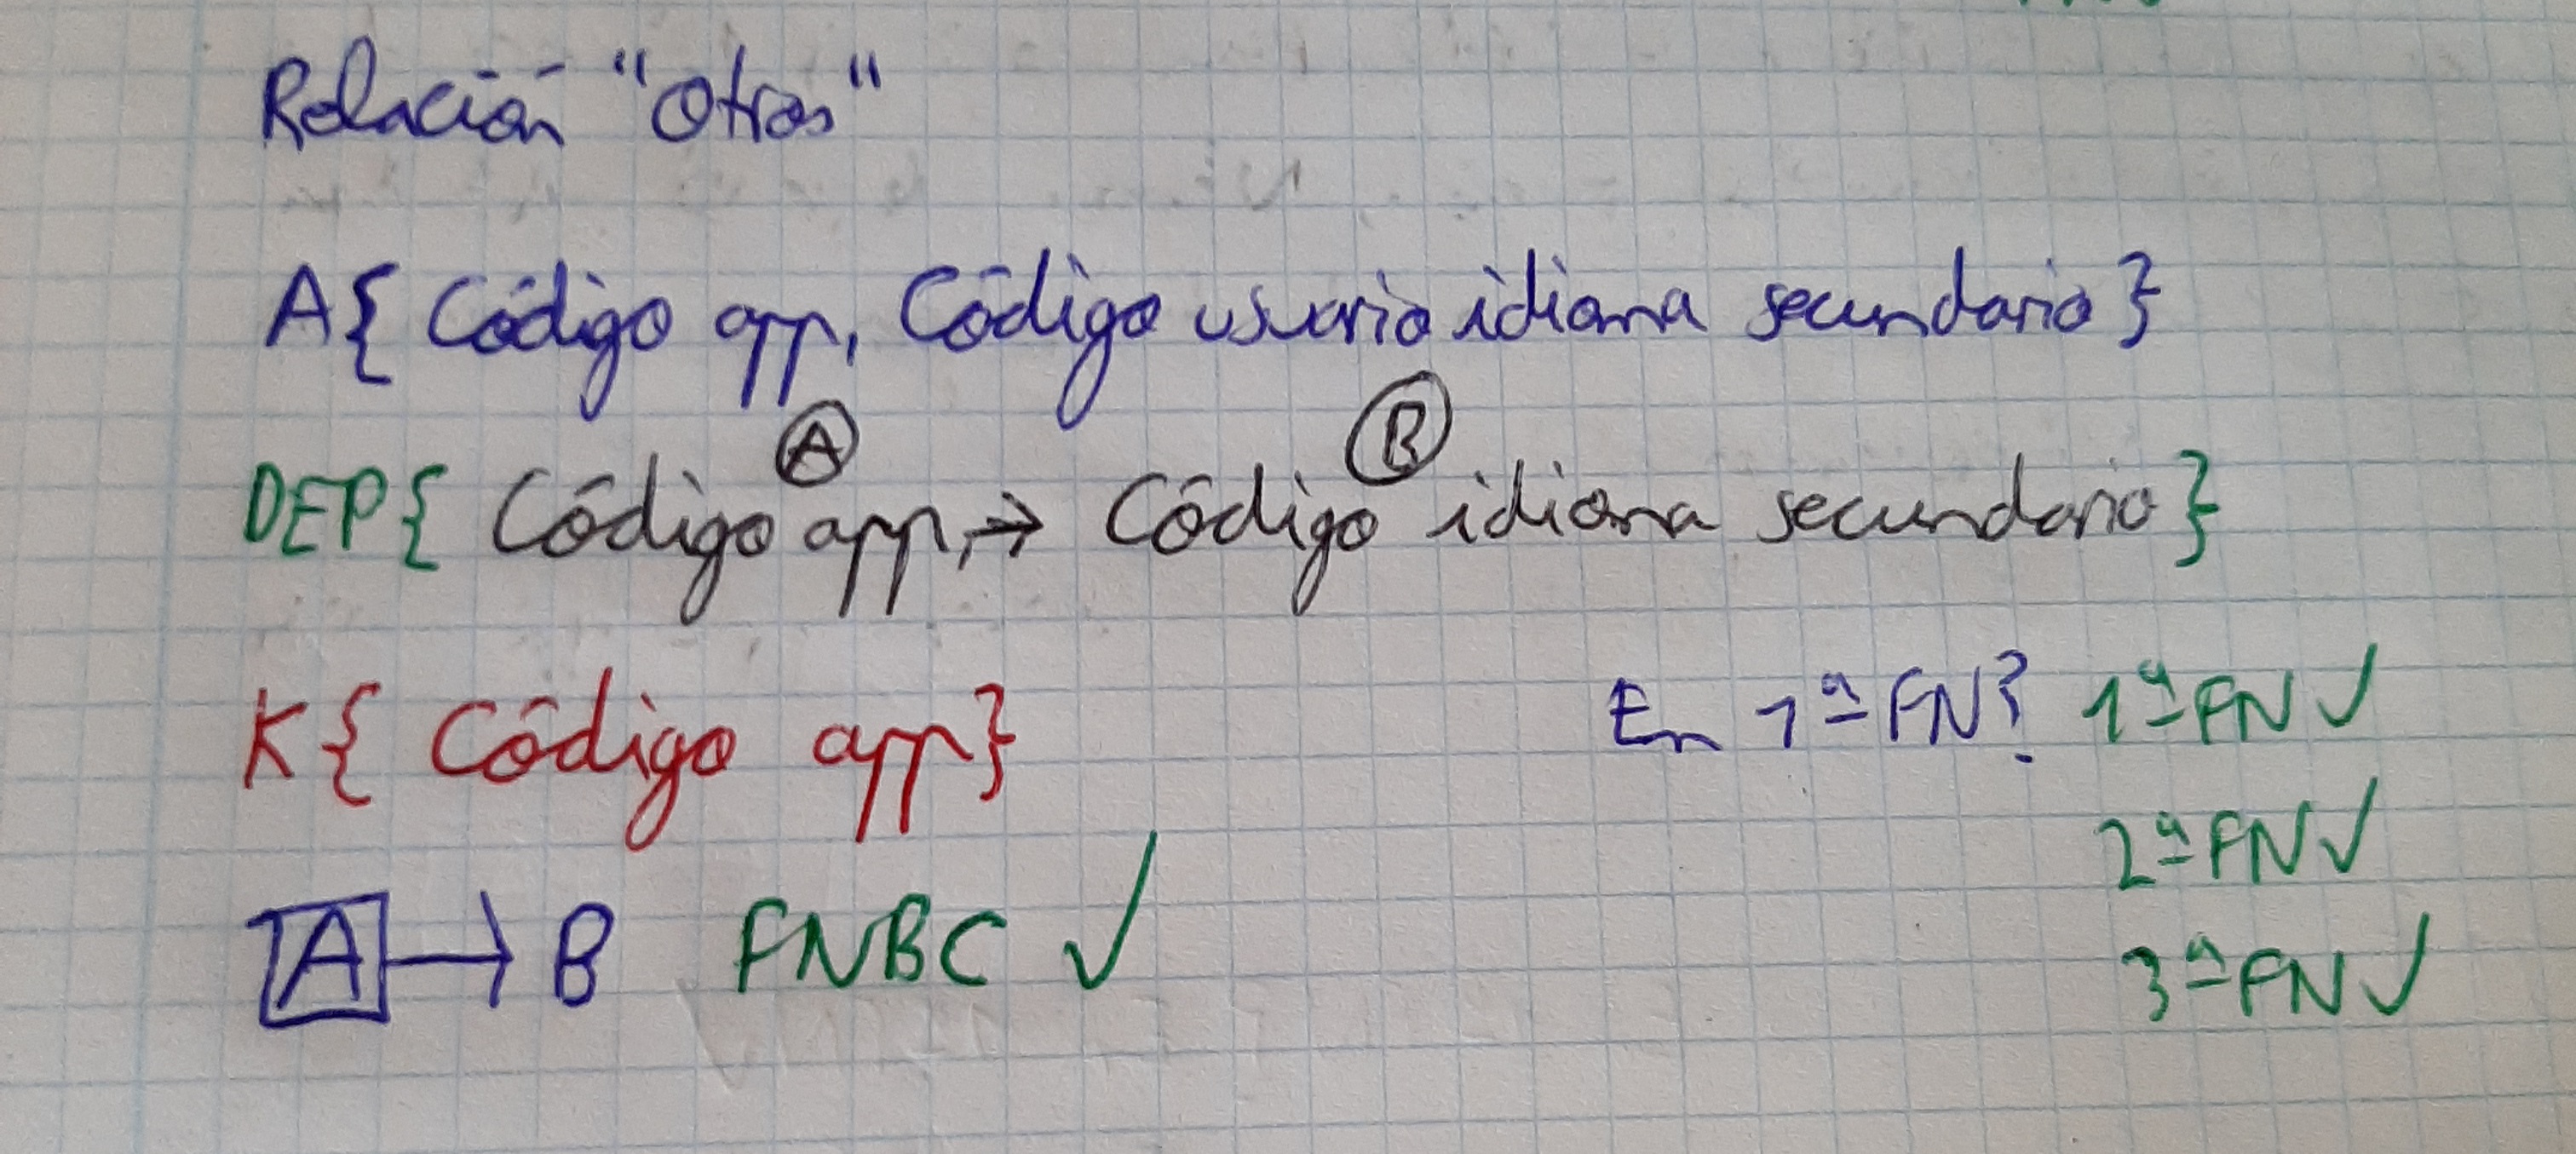 Relación "Otros"
A{ Código app, Código usuario idioma secundario}
A B
DEP{ Código app, → Código idioma secundario}
K{ Código app}
En 1ª FN? 1ª FN ✓
2ª FN ✓
A → B FNBC ✓
3ª FN ✓